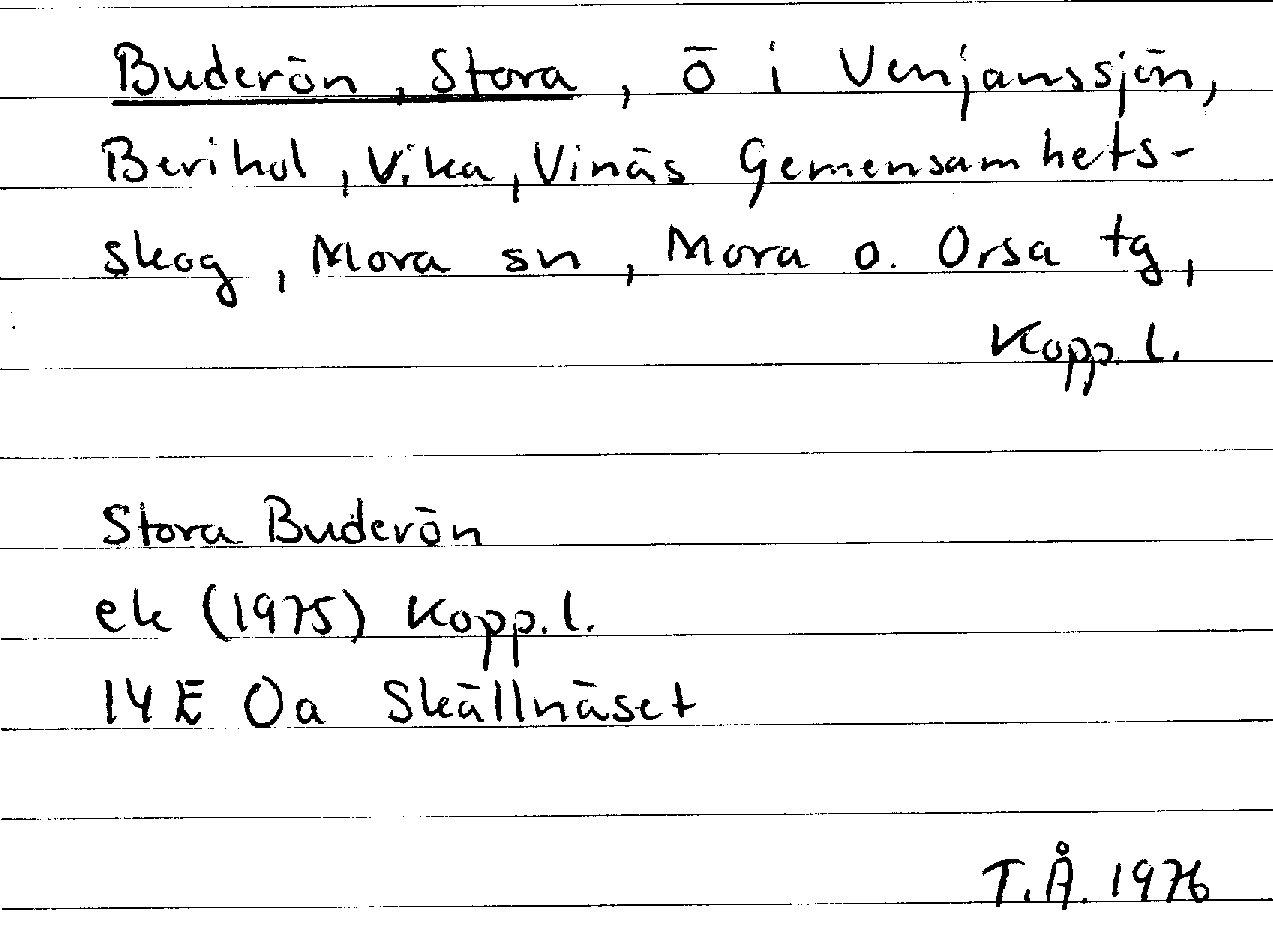 Buderön, Stora, ö i Venjanssjön,
Berihol, Vika, Vinäs Gemensamhets-
skog, Mora sn, Mora o. Orsa tg,
Kopp. l.
Stora Buderön
ek (1975) Kopp. l.
14E 0a Skällnäset
T.Å. 1976